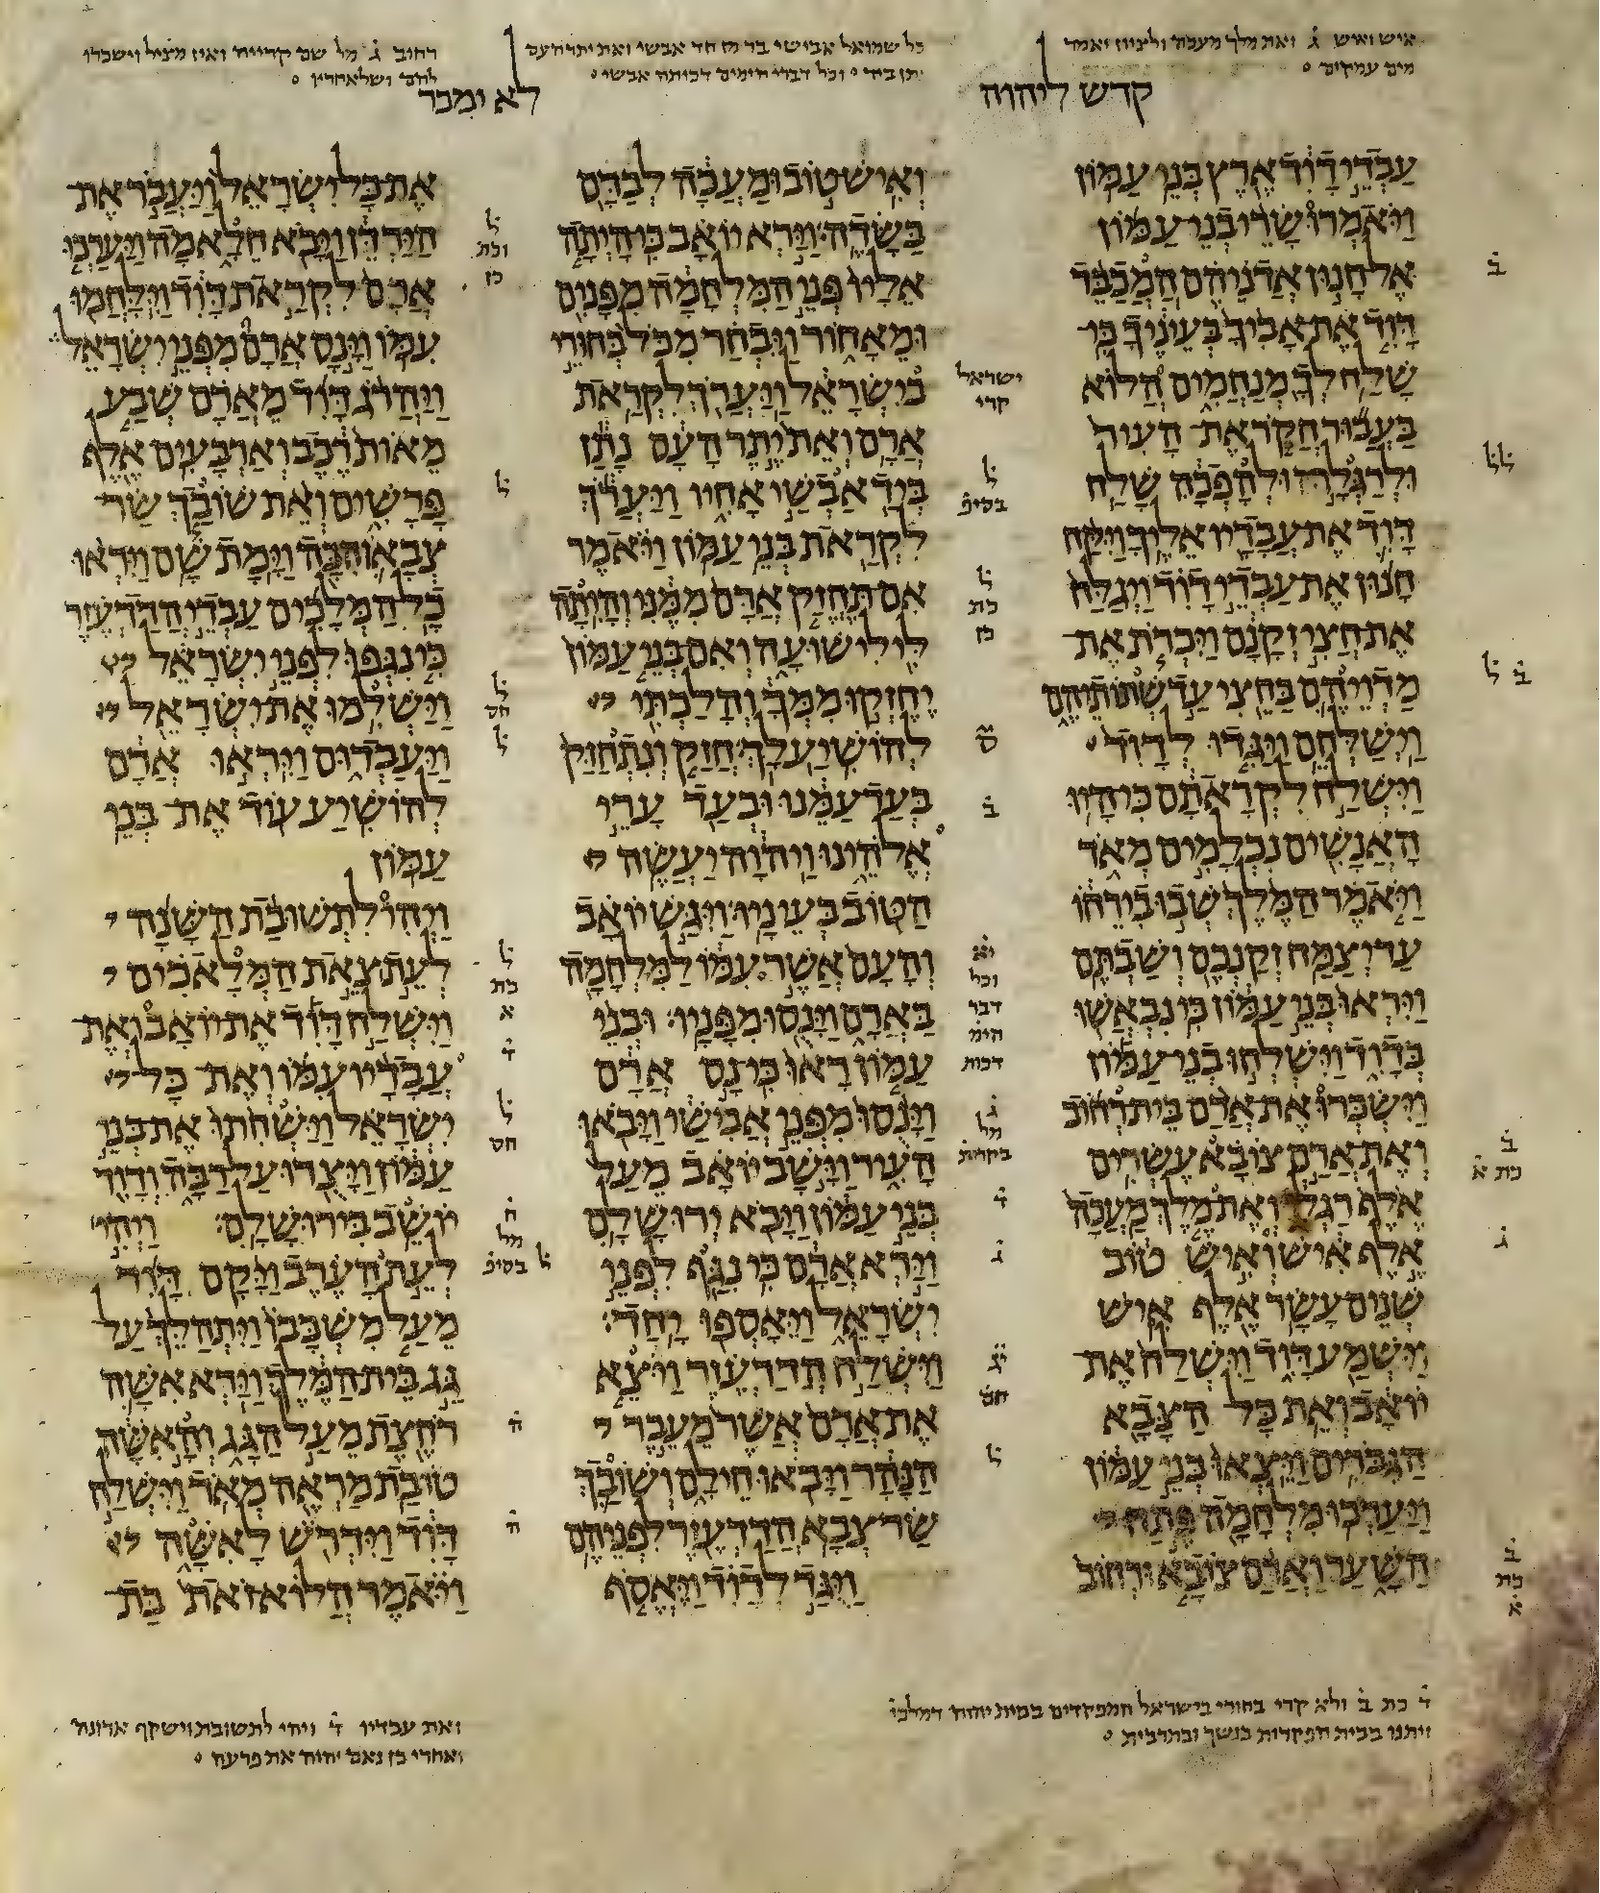 איש ואיש ג ואת מלך מעכה ולציון יאמר
מים עמקים
כל שמואל אבישי בר מן חד אבשי ואת יתר העם
נתן ביד וכל דברי הימים דכותה אבשי
רחוב ג מל שם קרייה ואין מציל וישכרו
לחם ושלאחריו
קדש ליהוה
לא ימכר
עַבְדֵי דָוִד אֶרֶץ בְּנֵי עַמּוֹן
וַיֹּאמְרוּ שָׂרֵי בְנֵי עַמּוֹן
אֶל חָנוּן אֲדֹנֵיהֶם הַמְכַבֵּד
דָּוִד אֶת אָבִיךָ בְּעֵינֶיךָ כִּי
שָׁלַח לְךָ מְנַחֲמִים הֲלוֹא
בַּעֲבוּר חֲקֹר אֶת הָעִיר
וּלְרַגְּלָהּ וּלְהָפְכָהּ שָׁלַח
דָּוִד אֶת עֲבָדָיו אֵלֶיךָ וַיִּקַּח
חָנוּן אֶת עַבְדֵי דָוִד וַיְגַלַּח
אֶת חֲצִי זְקָנָם וַיִּכְרֹת אֶת
מַדְוֵיהֶם בַּחֵצִי עַד שְׁתוֹתֵיהֶם
וַיְשַׁלְּחֵם וַיַּגִּדוּ לְדָוִד
וַיִּשְׁלַח לִקְרָאתָם כִּי הָיוּ
הָאֲנָשִׁים נִכְלָמִים מְאֹד
וַיֹּאמֶר הַמֶּלֶךְ שְׁבוּ בִירֵחוֹ
עַד יְצַמַּח זְקַנְכֶם וְשַׁבְתֶּם
וַיִּרְאוּ בְּנֵי עַמּוֹן כִּי נִבְאֲשׁוּ
בְּדָוִד וַיִּשְׁלְחוּ בְנֵי עַמּוֹן
וַיִּשְׂכְּרוּ אֶת אֲרַם בֵּית רְחוֹב
וְאֶת אֲרַם צוֹבָא עֶשְׂרִים
אֶלֶף רַגְלִי וְאֶת מֶלֶךְ מַעֲכָה
אֶלֶף אִישׁ וְאִישׁ טוֹב
שְׁנֵים עָשָׂר אֶלֶף אִישׁ
וַיִּשְׁמַע דָּוִד וַיִּשְׁלַח אֶת
יוֹאָב וְאֵת כָּל הַצָּבָא
הַגִּבֹּרִים וַיֵּצְאוּ בְּנֵי עַמּוֹן
וַיַּעַרְכוּ מִלְחָמָה פֶּתַח
הַשָּׁעַר וַאֲרַם צוֹבָא וּרְחוֹב
וְאִישׁ טוֹב וּמַעֲכָה לְבַדָּם
בַּשָּׂדֶה וַיַּרְא יוֹאָב כִּי הָיְתָה
אֵלָיו פְּנֵי הַמִּלְחָמָה מִפָּנִים
וּמֵאָחוֹר וַיִּבְחַר מִכֹּל בְּחוּרֵי
בְּיִשְׂרָאֵל וַיַּעֲרֹךְ לִקְרַאת
אֲרָם וְאֵת יֶתֶר הָעָם נָתַן
בְּיַד אַבְשַׁי אָחִיו וַיַּעֲרֹךְ
לִקְרַאת בְּנֵי עַמּוֹן וַיֹּאמֶר
אִם תֶּחֱזַק אֲרָם מִמֶּנִּי וְהָיִתָה
לִּי לִישׁוּעָה וְאִם בְּנֵי עַמּוֹן
יֶחֶזְקוּ מִמְּךָ וְהָלַכְתִּי
לְהוֹשִׁיעַ לָךְ חֲזַק וְנִתְחַזַּק
בְּעַד עַמֵּנוּ וּבְעַד עָרֵי
אֱלֹהֵינוּ וַיהוָה יַעֲשֶׂה
הַטּוֹב בְּעֵינָיו וַיִּגַּשׁ יוֹאָב
וְהָעָם אֲשֶׁר עִמּוֹ לַמִּלְחָמָה
בַּאֲרָם וַיָּנֻסוּ מִפָּנָיו וּבְנֵי
עַמּוֹן רָאוּ כִּי נָס אֲרָם
וַיָּנֻסוּ מִפְּנֵי אֲבִישַׁי וַיָּבֹאוּ
הָעִיר וַיָּשָׁב יוֹאָב מֵעַל
בְּנֵי עַמּוֹן וַיָּבֹא יְרוּשָׁלִָם
וַיַּרְא אֲרָם כִּי נִגַּף לִפְנֵי
יִשְׂרָאֵל וַיֵּאָסְפוּ יָחַד
וַיִּשְׁלַח הֲדַדְעֶזֶר וַיֹּצֵא
אֶת אֲרָם אֲשֶׁר מֵעֵבֶר
הַנָּהָר וַיָּבֹאוּ חֵילָם וְשׁוֹבַךְ
שַׂר צְבָא הֲדַדְעֶזֶר לִפְנֵיהֶם
וַיֻּגַּד לְדָוִד וַיֶּאֱסֹף
אֶת כָּל יִשְׂרָאֵל וַיַּעֲבֹר אֶת
הַיַּרְדֵּן וַיָּבֹא חֵלָאמָה וַיַּעַרְכוּ
אֲרָם לִקְרַאת דָּוִד וַיִּלָּחֲמוּ
עִמּוֹ וַיָּנָס אֲרָם מִפְּנֵי יִשְׂרָאֵל
וַיַּהֲרֹג דָּוִד מֵאֲרָם שְׁבַע
מֵאוֹת רֶכֶב וְאַרְבָּעִים אֶלֶף
פָּרָשִׁים וְאֵת שׁוֹבַךְ שַׂר
צְבָאוֹ הִכָּה וַיָּמָת שָׁם וַיִּרְאוּ
כָל הַמְּלָכִים עַבְדֵי הֲדַדְעֶזֶר
כִּי נִגְּפוּ לִפְנֵי יִשְׂרָאֵל
וַיַּשְׁלִמוּ אֶת יִשְׂרָאֵל
וַיַּעַבְדוּם וַיִּרְאוּ אֲרָם
לְהוֹשִׁיעַ עוֹד אֶת בְּנֵי
עַמּוֹן
וַיְהִי לִתְשׁוּבַת הַשָּׁנָה
לְעֵת צֵאת הַמְּלָאכִים
וַיִּשְׁלַח דָּוִד אֶת יוֹאָב וְאֶת
עֲבָדָיו עִמּוֹ וְאֶת כָּל
יִשְׂרָאֵל וַיַּשְׁחִתוּ אֶת בְּנֵי
עַמּוֹן וַיָּצֻרוּ עַל רַבָּה וְדָוִד
יוֹשֵׁב בִּירוּשָׁלִָם וַיְהִי
לְעֵת הָעֶרֶב וַיָּקָם דָּוִד
מֵעַל מִשְׁכָּבוֹ וַיִּתְהַלֵּךְ עַל
גַּג בֵּית הַמֶּלֶךְ וַיַּרְא אִשָּׁה
רֹחֶצֶת מֵעַל הַגָּג וְהָאִשָּׁה
טוֹבַת מַרְאֶה מְאֹד וַיִּשְׁלַח
דָּוִד וַיִּדְרֹשׁ לָאִשָּׁה
וַיֹּאמֶר הֲלוֹא זֹאת בַּת
ד כת ב ולא קרי בחורי בישראל המפקדים בבית יהוה דמלכי
ויתנו בבית הפקדות בנשך ובתרבית
ואת עבדיו ד ויהי לתשובת וישקף ארונה
ואחרי כן נאם יהוה את פרעה